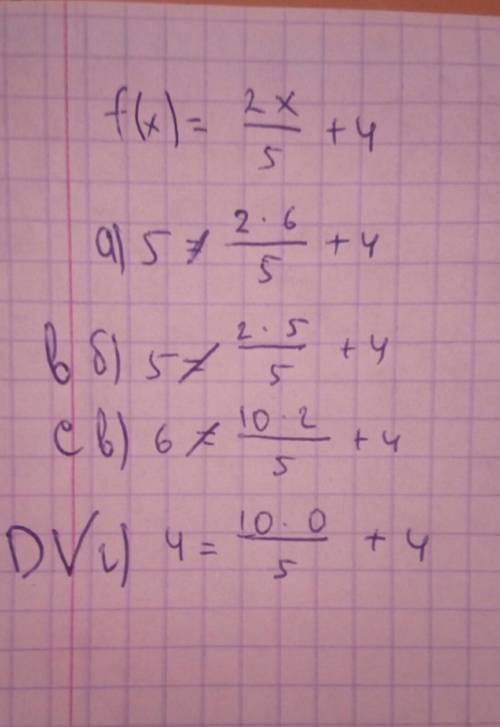 f(x) = 2x/5 + 4
а) 5 ≠ 2·6/5 + 4
b б) 5 ≠ 2·5/5 + 4
c в) 6 ≠ 10·2/5 + 4
D V г) 4 = 10·0/5 + 4